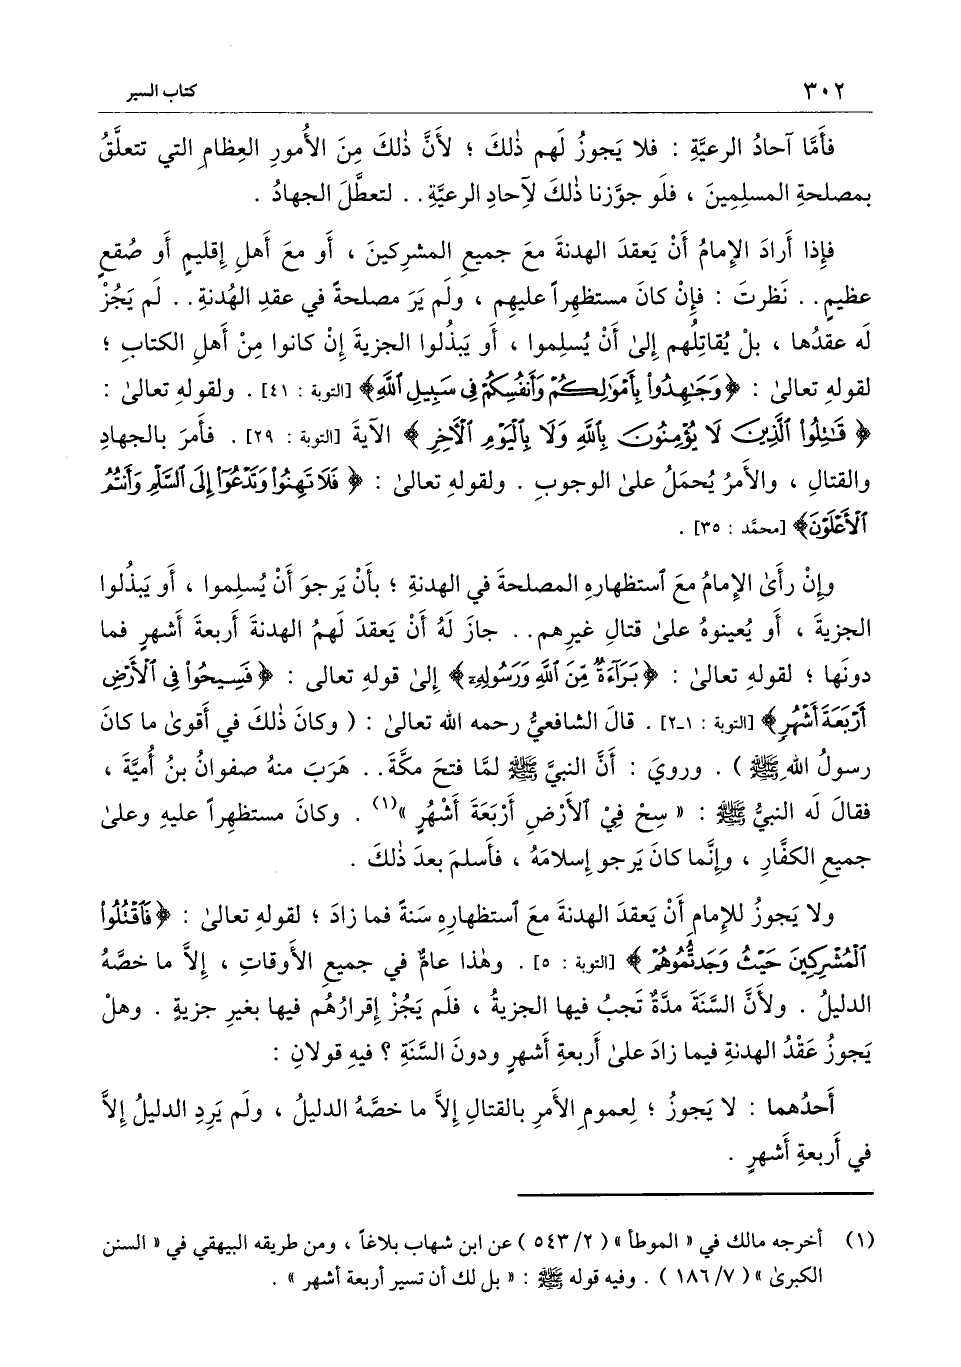 ٣٠٢ كتاب السير
فأمَّا آحادُ الرعيَّةِ : فلا يَجوزُ لَهم ذٰلكَ ؛ لأَنَّ ذٰلكَ مِنَ الأُمورِ العِظامِ التي تتعلَّقُ
بمصلحةِ المسلِمِينَ ، فلَو جوَّزنا ذٰلكَ لآحادِ الرعيَّةِ . . لتعطَّلَ الجهادُ .
فإِذا أَرادَ الإِمامُ أَنْ يَعقدَ الهدنةَ معَ جميعِ المشرِكينَ ، أَو معَ أَهلِ إِقليمٍ أَو صُقعٍ
عظيمٍ . . نَظرتَ : فإِنْ كانَ مستظهِراً عليهِم ، ولَم يَرَ مصلحةً في عقدِ الهُدنةِ . . لَم يَجُزْ
لَه عقدُها ، بلْ يُقاتِلُهم إِلىٰ أَنْ يُسلِموا ، أَو يَبذُلوا الجزيةَ إِنْ كانوا مِنْ أَهلِ الكتابِ ؛
لقولهِ تعالىٰ : ﴿ وَجَـٰهِدُواْ بِأَمْوَٰلِكُمْ وَأَنفُسِكُمْ فِى سَبِيلِ ٱللَّهِ ﴾ [التوبة : ٤١] . ولقولهِ تعالىٰ :
﴿ قَـٰتِلُواْ ٱلَّذِينَ لَا يُؤْمِنُونَ بِٱللَّهِ وَلَا بِٱلْيَوْمِ ٱلْآخِرِ ﴾ الآيةَ [التوبة : ٢٩] . فأَمرَ بالجهادِ
والقتالِ ، والأَمرُ يُحمَلُ علىٰ الوجوبِ . ولقولهِ تعالىٰ : ﴿ فَلَا تَهِنُواْ وَتَدْعُوٓاْ إِلَى ٱلسَّلْمِ وَأَنتُمُ
ٱلْأَعْلَوْنَ ﴾ [محمَّد : ٣٥] .
وإِنْ رأَىٰ الإِمامُ معَ ٱستظهارِهِ المصلحةَ في الهدنةِ ؛ بأَنْ يَرجوَ أَنْ يُسلِموا ، أَو يَبذُلوا
الجزيةَ ، أَو يُعينوهُ علىٰ قتالِ غيرِهم . . جازَ لَهُ أَنْ يَعقدَ لَهمُ الهدنةَ أَربعةَ أَشهرٍ فما
دونَها ؛ لقولهِ تعالىٰ : ﴿ بَرَآءَةٌ مِّنَ ٱللَّهِ وَرَسُولِهِۦٓ ﴾ إِلىٰ قولهِ تعالى : ﴿ فَسِيحُواْ فِى ٱلْأَرْضِ
أَرْبَعَةَ أَشْهُرٍ ﴾ [التوبة : ١ـ٢] . قالَ الشافعيُّ رحمه الله تعالىٰ : ( وكانَ ذٰلكَ في أَقوىٰ ما كانَ
رسولُ اللهِ ﷺ ) . ورويَ : أَنَّ النبيَّ ﷺ لمَّا فتحَ مكَّةَ . . هَرَبَ منهُ صفوانُ بنُ أُميَّةَ ،
فقالَ لَه النبيُّ ﷺ : « سِحْ فِيْ ٱلأَرْضِ أَرْبَعَةَ أَشْهُرٍ »(١) . وكانَ مستظهِراً عليهِ وعلىٰ
جميعِ الكفَّارِ ، وإِنَّما كانَ يَرجو إِسلامَهُ ، فأَسلمَ بعدَ ذٰلكَ .
ولا يَجوزُ للإِمامِ أَنْ يَعقدَ الهدنةَ معَ ٱستظهارِهِ سَنةً فما زادَ ؛ لقولهِ تعالىٰ : ﴿ فَٱقْتُلُواْ
ٱلْمُشْرِكِينَ حَيْثُ وَجَدتُّمُوهُمْ ﴾ [التوبة : ٥] . وهٰذا عامٌّ في جميعِ الأَوقاتِ ، إِلاَّ ما خصَّهُ
الدليلُ . ولأَنَّ السَّنَةَ مدَّةٌ تَجبُ فيها الجزيةُ ، فلَم يَجُزْ إِقرارُهُم فيها بغيرِ جزيةٍ . وهلْ
يَجوزُ عَقْدُ الهدنةِ فيما زادَ علىٰ أَربعةِ أَشهرٍ ودونَ السَّنَةِ ؟ فيهِ قولانِ :
أَحدُهما : لا يَجوزُ ؛ لِعمومِ الأَمرِ بالقتالِ إِلاَّ ما خصَّهُ الدليلُ ، ولَم يَرِدِ الدليلُ إِلاَّ
في أَربعةِ أَشهرٍ .
(١) أخرجه مالك في « الموطأ » ( ٢/ ٥٤٣ ) عن ابن شهاب بلاغاً ، ومن طريقه البيهقي في « السنن
الكبرىٰ » ( ٧/ ١٨٦ ) . وفيه قوله ﷺ : « بل لك أن تسير أربعة أشهر » .